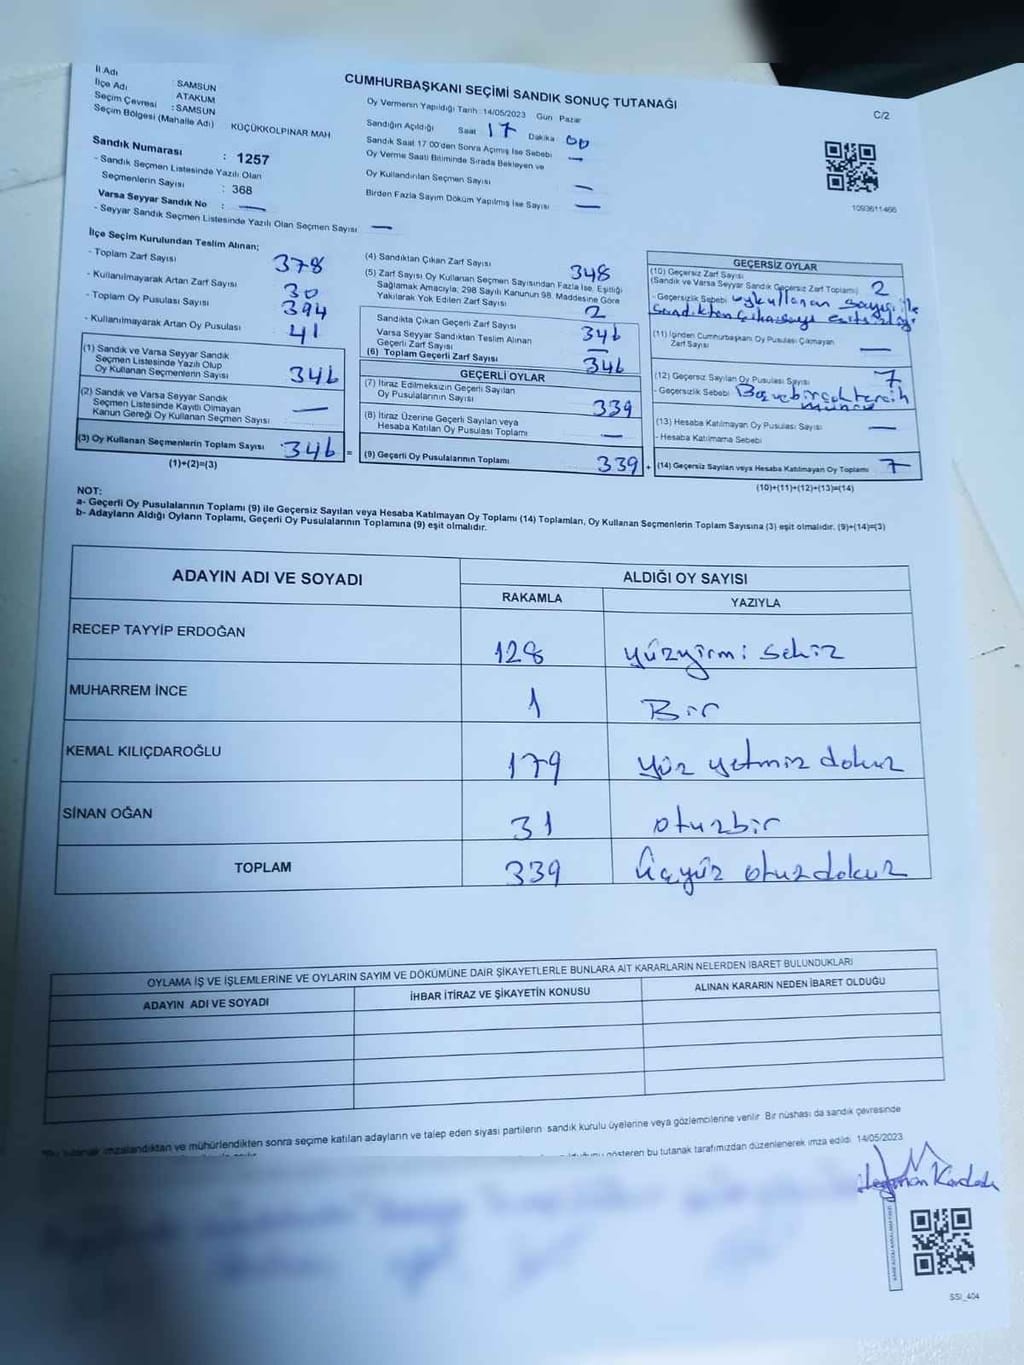 CUMHURBAŞKANI SEÇİMİ SANDIK SONUÇ TUTANAĞI
C/2
İl Adı : SAMSUN
İlçe Adı : ATAKUM
Seçim Çevresi : SAMSUN
Seçim Bölgesi (Mahalle Adı) KÜÇÜKKOLPINAR MAH.
Sandık Numarası : 1257
- Sandık Seçmen Listesinde Yazılı Olan
Seçmenlerin Sayısı : 368
Varsa Seyyar Sandık No : —
- Seyyar Sandık Seçmen Listesinde Yazılı Olan Seçmen Sayısı —
Oy Vermenin Yapıldığı Tarih :14/05/2023 Gün Pazar
Sandığın Açıldığı Saat 17 Dakika 00
Sandık Saat 17 00'den Sonra Açılmış İse Sebebi —
Oy Verme Saati Bitiminde Sırada Bekleyen ve
Oy Kullandırılan Seçmen Sayısı —
Birden Fazla Sayım Döküm Yapılmış İse Sayısı —
1093611466
İlçe Seçim Kurulundan Teslim Alınan;
- Toplam Zarf Sayısı 378
- Kullanılmayarak Artan Zarf Sayısı 30
- Toplam Oy Pusulası Sayısı 394
- Kullanılmayarak Artan Oy Pusulası 41
(1) Sandık ve Varsa Seyyar Sandık
Seçmen Listesinde Yazılı Olup
Oy Kullanan Seçmenlerin Sayısı 346
(2) Sandık ve Varsa Seyyar Sandık
Seçmen Listesinde Kayıtlı Olmayan
Kanun Gereği Oy Kullanan Seçmen Sayısı —
(3) Oy Kullanan Seçmenlerin Toplam Sayısı 346 =
(1)+(2)=(3)
(4) Sandıktan Çıkan Zarf Sayısı 348
(5) Zarf Sayısı Oy Kullanan Seçmen Sayısından Fazla İse, Eşitliği
Sağlamak Amacıyla; 298 Sayılı Kanunun 98. Maddesine Göre
Yakılarak Yok Edilen Zarf Sayısı 2
Sandıkta Çıkan Geçerli Zarf Sayısı 346
Varsa Seyyar Sandıktan Teslim Alınan
Geçerli Zarf Sayısı —
(6) Toplam Geçerli Zarf Sayısı 346
GEÇERLİ OYLAR
(7) İtiraz Edilmeksizin Geçerli Sayılan
Oy Pusulalarının Sayısı 339
(8) İtiraz Üzerine Geçerli Sayılan veya
Hesaba Katılan Oy Pusulası Toplamı —
(9) Geçerli Oy Pusulalarının Toplamı 339 +
GEÇERSİZ OYLAR
(10) Geçersiz Zarf Sayısı
(Sandık ve Varsa Seyyar Sandık Geçersiz Zarf Toplamı) 2
- Geçersizlik Sebebi oy kullanan sayısı ile
(11) İçinden Cumhurbaşkanı Oy Pusulası Çıkmayan
Zarf Sayısı —
(12) Geçersiz Sayılan Oy Pusulası Sayısı 7
- Geçersizlik Sebebi Boş ve birçok tercih
(13) Hesaba Katılmayan Oy Pusulası Sayısı —
- Hesaba Katılmama Sebebi
(14) Geçersiz Sayılan veya Hesaba Katılmayan Oy Toplamı 7
(10)+(11)+(12)+(13)=(14)
NOT:
a- Geçerli Oy Pusulalarının Toplamı (9) ile Geçersiz Sayılan veya Hesaba Katılmayan Oy Toplamı (14) Toplamları, Oy Kullanan Seçmenlerin Toplam Sayısına (3) eşit olmalıdır. (9)+(14)=(3)
b- Adayların Aldığı Oyların Toplamı, Geçerli Oy Pusulalarının Toplamına (9) eşit olmalıdır.
ADAYIN ADI VE SOYADI ALDIĞI OY SAYISI
RAKAMLA YAZIYLA
RECEP TAYYİP ERDOĞAN 128 yüzyirmi sekiz
MUHARREM İNCE 1 Bir
KEMAL KILIÇDAROĞLU 179 yüz yetmiş dokuz
SİNAN OĞAN 31 otuzbir
TOPLAM 339 üçyüz otuzdokuz
OYLAMA İŞ VE İŞLEMLERİNE VE OYLARIN SAYIM VE DÖKÜMÜNE DAİR ŞİKAYETLERLE BUNLARA AİT KARARLARIN NELERDEN İBARET BULUNDUKLARI
ADAYIN ADI VE SOYADI İHBAR İTİRAZ VE ŞİKAYETİN KONUSU ALINAN KARARIN NEDEN İBARET OLDUĞU
*Bu tutanak imzalandıktan ve mühürlendikten sonra seçime katılan adayların ve talep eden siyasi partilerin sandık kurulu üyelerine veya gözlemcilerine verilir. Bir nüshası da sandık çevresinde
gösteren bu tutanak tarafımızdan düzenlenerek imza edildi. 14/05/2023
SSI_404